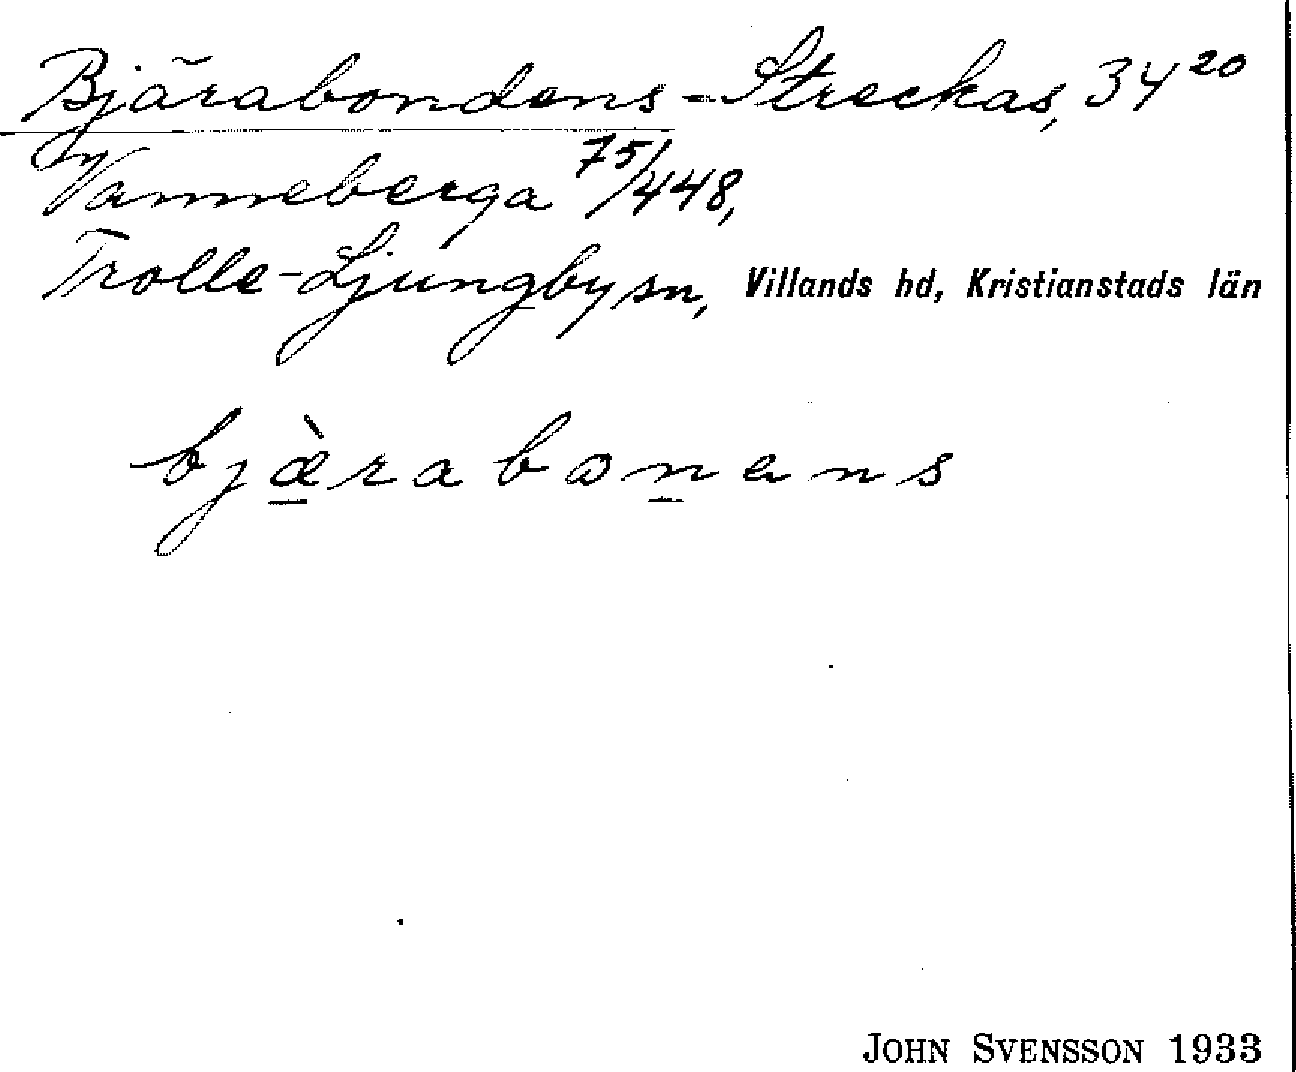 Bjärabondens-Streckas, 34²⁰
Vanneberga ⁷⁵/448,
Trolle-Ljungby sn, Villands hd, Kristianstads län
bjæ̠̀rabon̠ens
JOHN SVENSSON 1933